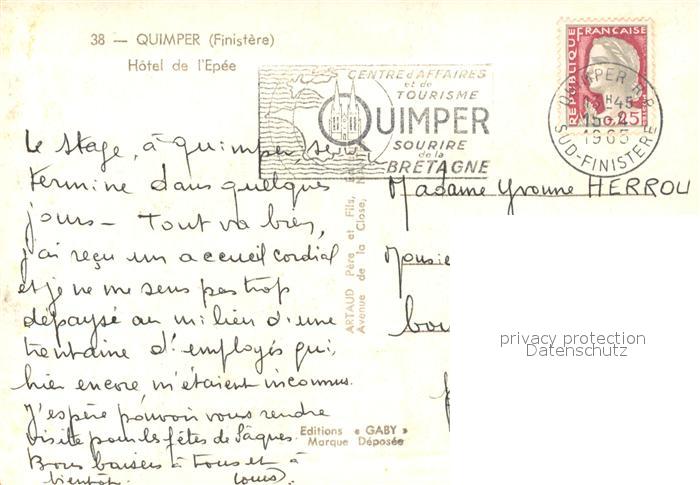 38 — QUIMPER (Finistère)
Hôtel de l'Epée
CENTRE d'AFFAIRES
et de
TOURISME
QUIMPER
SOURIRE
de la
BRETAGNE
REPUBLIQUE FRANÇAISE
0,25
QUIMPER R.P.
15-4
1965
SUD-FINISTERE
Le stage, à quimper, se
termine dans quelques
jours - Tout va bien,
j'ai reçu un accueil cordial
et je ne me sens pas trop
dépaysé au milieu d'une
trentaine d'employés qui,
hier encore m'étaient inconnus.
J'espère pouvoir vous rendre
visite pour les fêtes de Pâques.
Bons baisers à tous et à
bientôt. Louis
ARTAUD Père et Fils,
Avenue de la Close,
Editions « GABY »
Marque Déposée
Madame Yvonne HERROU
privacy protection
Datenschutz